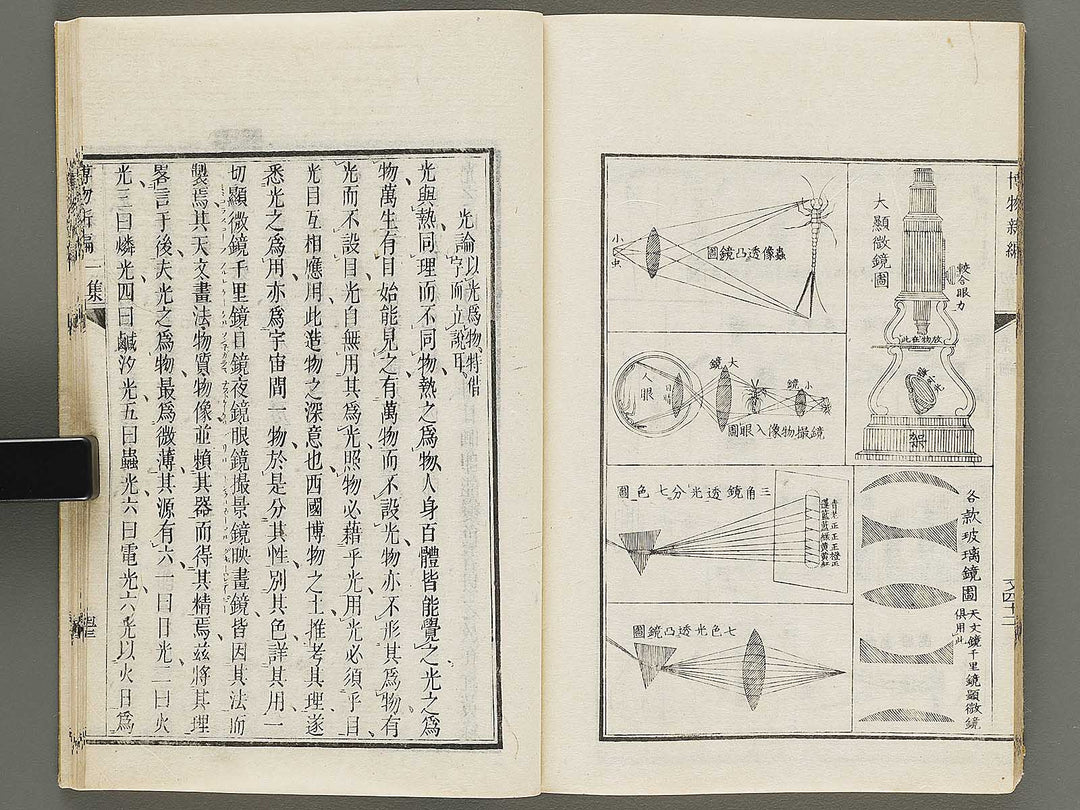 博物新編
大顯微鏡圖
較合眼力
放物在此
架
各款玻璃鏡圖
天文鏡千里鏡顯微鏡
俱用此
小虫
圖鏡凸透像蟲
人眼
目睛
大鏡
小鏡
圖眼入像物撮鏡
圖色七分光透鏡角三
圖鏡凸透光色七
光論以光爲物特借
字而立說耳
光與熱同理而不同物熱之爲物人身百體皆能覺之光之爲
物萬生有目始能見之有萬物而不設光物亦不形其爲物有
光而不設目光自無用其爲光照物必藉乎光用光必須乎目
光目互相應用此造物之深意也西國博物之士推考其理遂
悉光之爲用亦爲宇宙間一物於是分其性別其色詳其用一
切顯微鏡千里鏡目鏡夜鏡眼鏡撮景鏡映畫鏡皆因其法而
製焉其天文畫法物質物像並賴其器而得其精焉茲將其理
畧言于後夫光之爲物最爲微薄其源有六一曰日光二曰火
光三曰燐光四曰鹹汐光五曰蟲光六曰電光六光以火日爲
博物新編二集